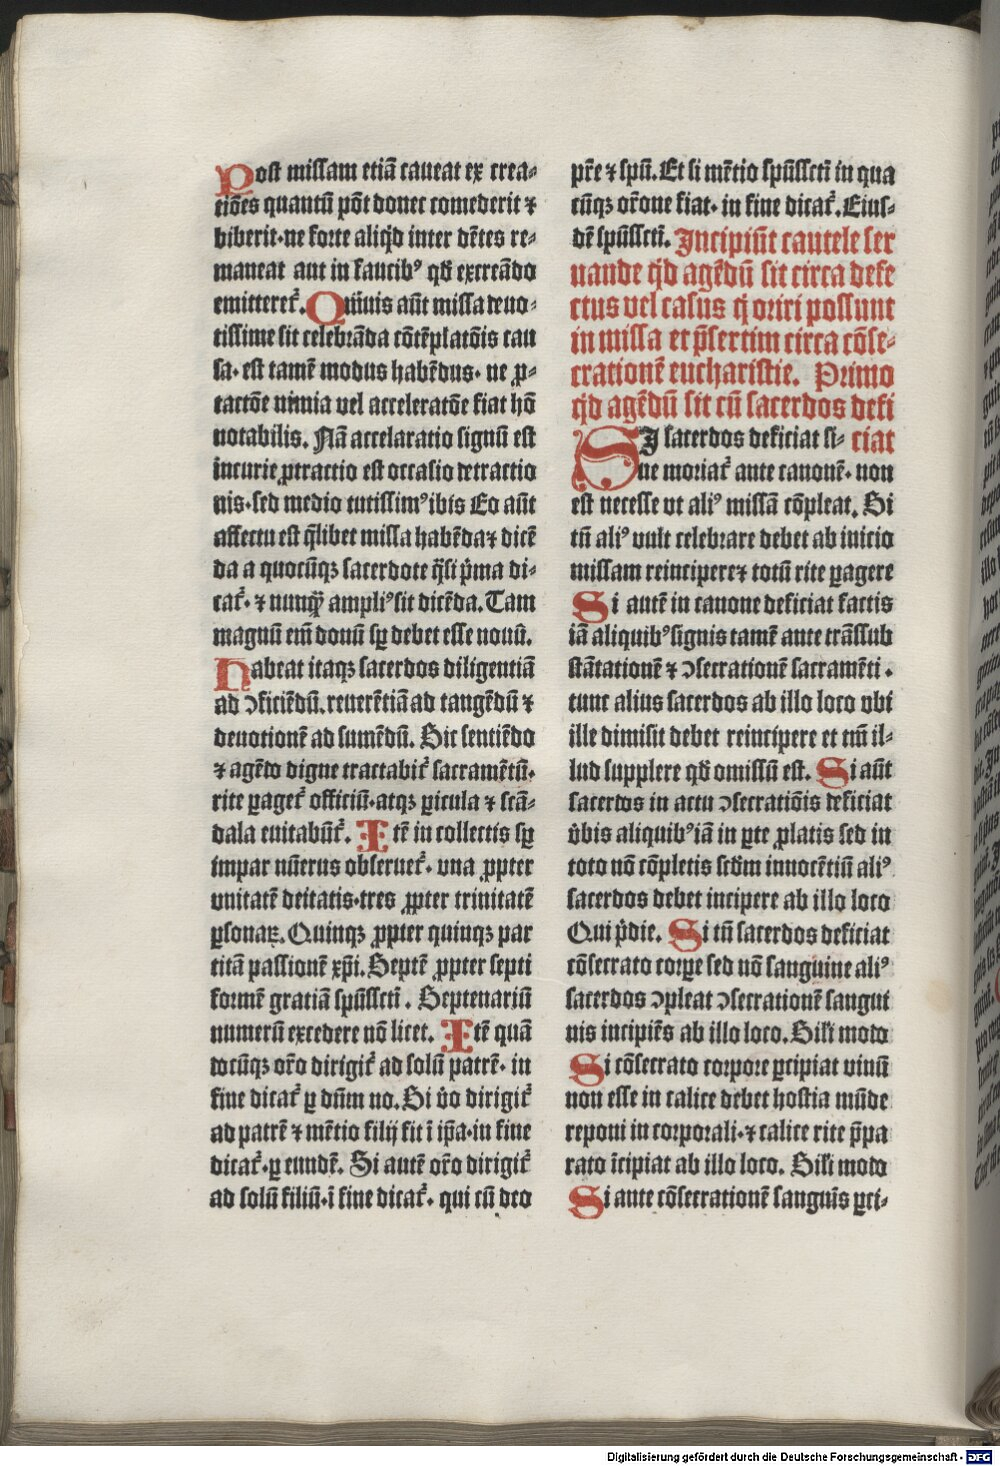 Post missam etiā caueat ex crea⸗
ciōes quantū põt donec comederit ⁊
biberit·ne forte aliq̇d inter dētes re⸗
maneat aut in faucibꝰ qd̄ excreādo
emitteret᷑. Quīuis aūt missa deuo⸗
tissime sit celebrāda cōtēplatōis cau
sa· est tamē modus habēdus· ne ꝓ⸗
tactōe nimia vel acceleratōe fiat hō
notabilis. Nā accelaratio signū est
incurie ꝓtractio est occasio detractio
nis·sed medio tutissimꝰ ibis Eo aūt
affectu est q̄libet missa habēda⁊ dicē
da a quocūqꝫ sacerdote q̄si p̄ma di⸗
cat᷑· ⁊ nunq̄ꝫ ampliꝰ sit dicēda. Tam
magnū em̄ donū sꝑ debet esse nouū.
Habeat itaqꝫ sacerdos diligentiā
ad ↄficiēdū, reuerētiā ad tangēdū ⁊
deuotionē ad sumēdū. Sic sentiēdo
⁊ agēdo digne tractabit᷑ sacramētū·
rite ꝑaget᷑ officiū·atqꝫ ꝑicula ⁊ scā⸗
dala euitabūt᷑. Itē in collectis sꝑ
impar nūerus obseruet᷑· vna ꝓpter
vnitatē deitatis·tres ꝓpter trinitatē
ꝑsonaꝝ. Quinqꝫ ꝓpter quinqꝫ par
titā passionē xp̄i. Septē ꝓpter septi
formē gratiā spūsscti. Septenariū
numerū excedere nō licet. Itē quā
docūqꝫ or̄o dirigit᷑ ad solū patrē· in
fine dicat᷑ ꝑ dn̄m no. Si v̊o dirigit᷑
ad patrē ⁊ mētio filij fit ī ip̄a·in fine
dicat᷑·ꝑ eundē. Si autē or̄o dirigit᷑
ad solū filiū·ī fine dicat᷑· qui cū deo
pr̄e ⁊ spū. Et si mētio spūsscti in qua
cūqꝫ or̄one fiat· in fine dicat᷑. Eius⸗
dē spūsscti. Incipiūt cautele ser
uande q̇d agēdū sit circa defe
ctus vel casus q̇ oriri possunt
in missa et p̄sertim circa cōse⸗
crationē eucharistie. Primo
q̇d agēdū sit cū sacerdos defi
SI sacerdos deficiat si⸗ ciat
ne moriat᷑ ante canonē· non
est necesse vt aliꝰ missā cōpleat. Si
tn̄ aliꝰ vult celebrare debet ab inicio
missam reincipere⁊ totū rite ꝑagere
Si autē in canone deficiat factis
iā aliquibꝰ signis tamē ante trāssub
stātationē ⁊ ↄsecrationē sacramēti·
tunc alius sacerdos ab illo loco vbi
ille dimisit debet reincipere et tm̄ il⸗
lud supplere qd̄ omissū est. Si aūt
sacerdos in actu ↄsecratiōis deficiat
v̊bis aliquibꝰ iā in ꝑte ꝓlatis sed in
toto nō cōpletis scd̄m innocētiū aliꝰ
sacerdos debet incipere ab illo loco
Qui p̊die. Si tn̄ sacerdos deficiat
cōsecrato corꝑe sed nō sanguine aliꝰ
sacerdos ↄpleat ↄsecrationē sangui
nis incipiēs ab illo loco. Sil̄i modo
Si cōsecrato corpore ꝑcipiat vinū
non esse in calice debet hostia mūde
reponi in corporali·⁊ calice rite p̄pa
rato īcipiat ab illo loco. Sil̄i modo
Si ante cōsecrationē sanguīs ꝑci⸗
Digitalisierung gefördert durch die Deutsche Forschungsgemeinschaft - DFG